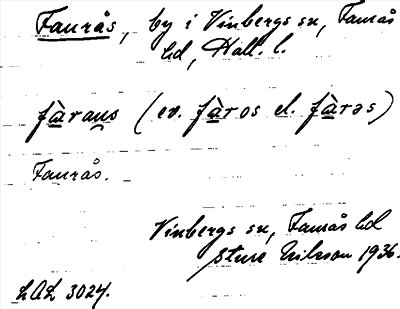 Faurås, by i Vinbergs sn, Faurås
hd, Hall. l.
fàraus (ev. fàros el. fàrəs)
Faurås.
Vinbergs sn, Faurås hd
Sture Erikson 1936.
LAL 3024.